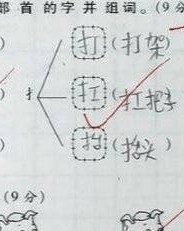 部首的字并组词。(9分
打(打架)
扌 扛(扛把手
抬(抬头)
(9分)